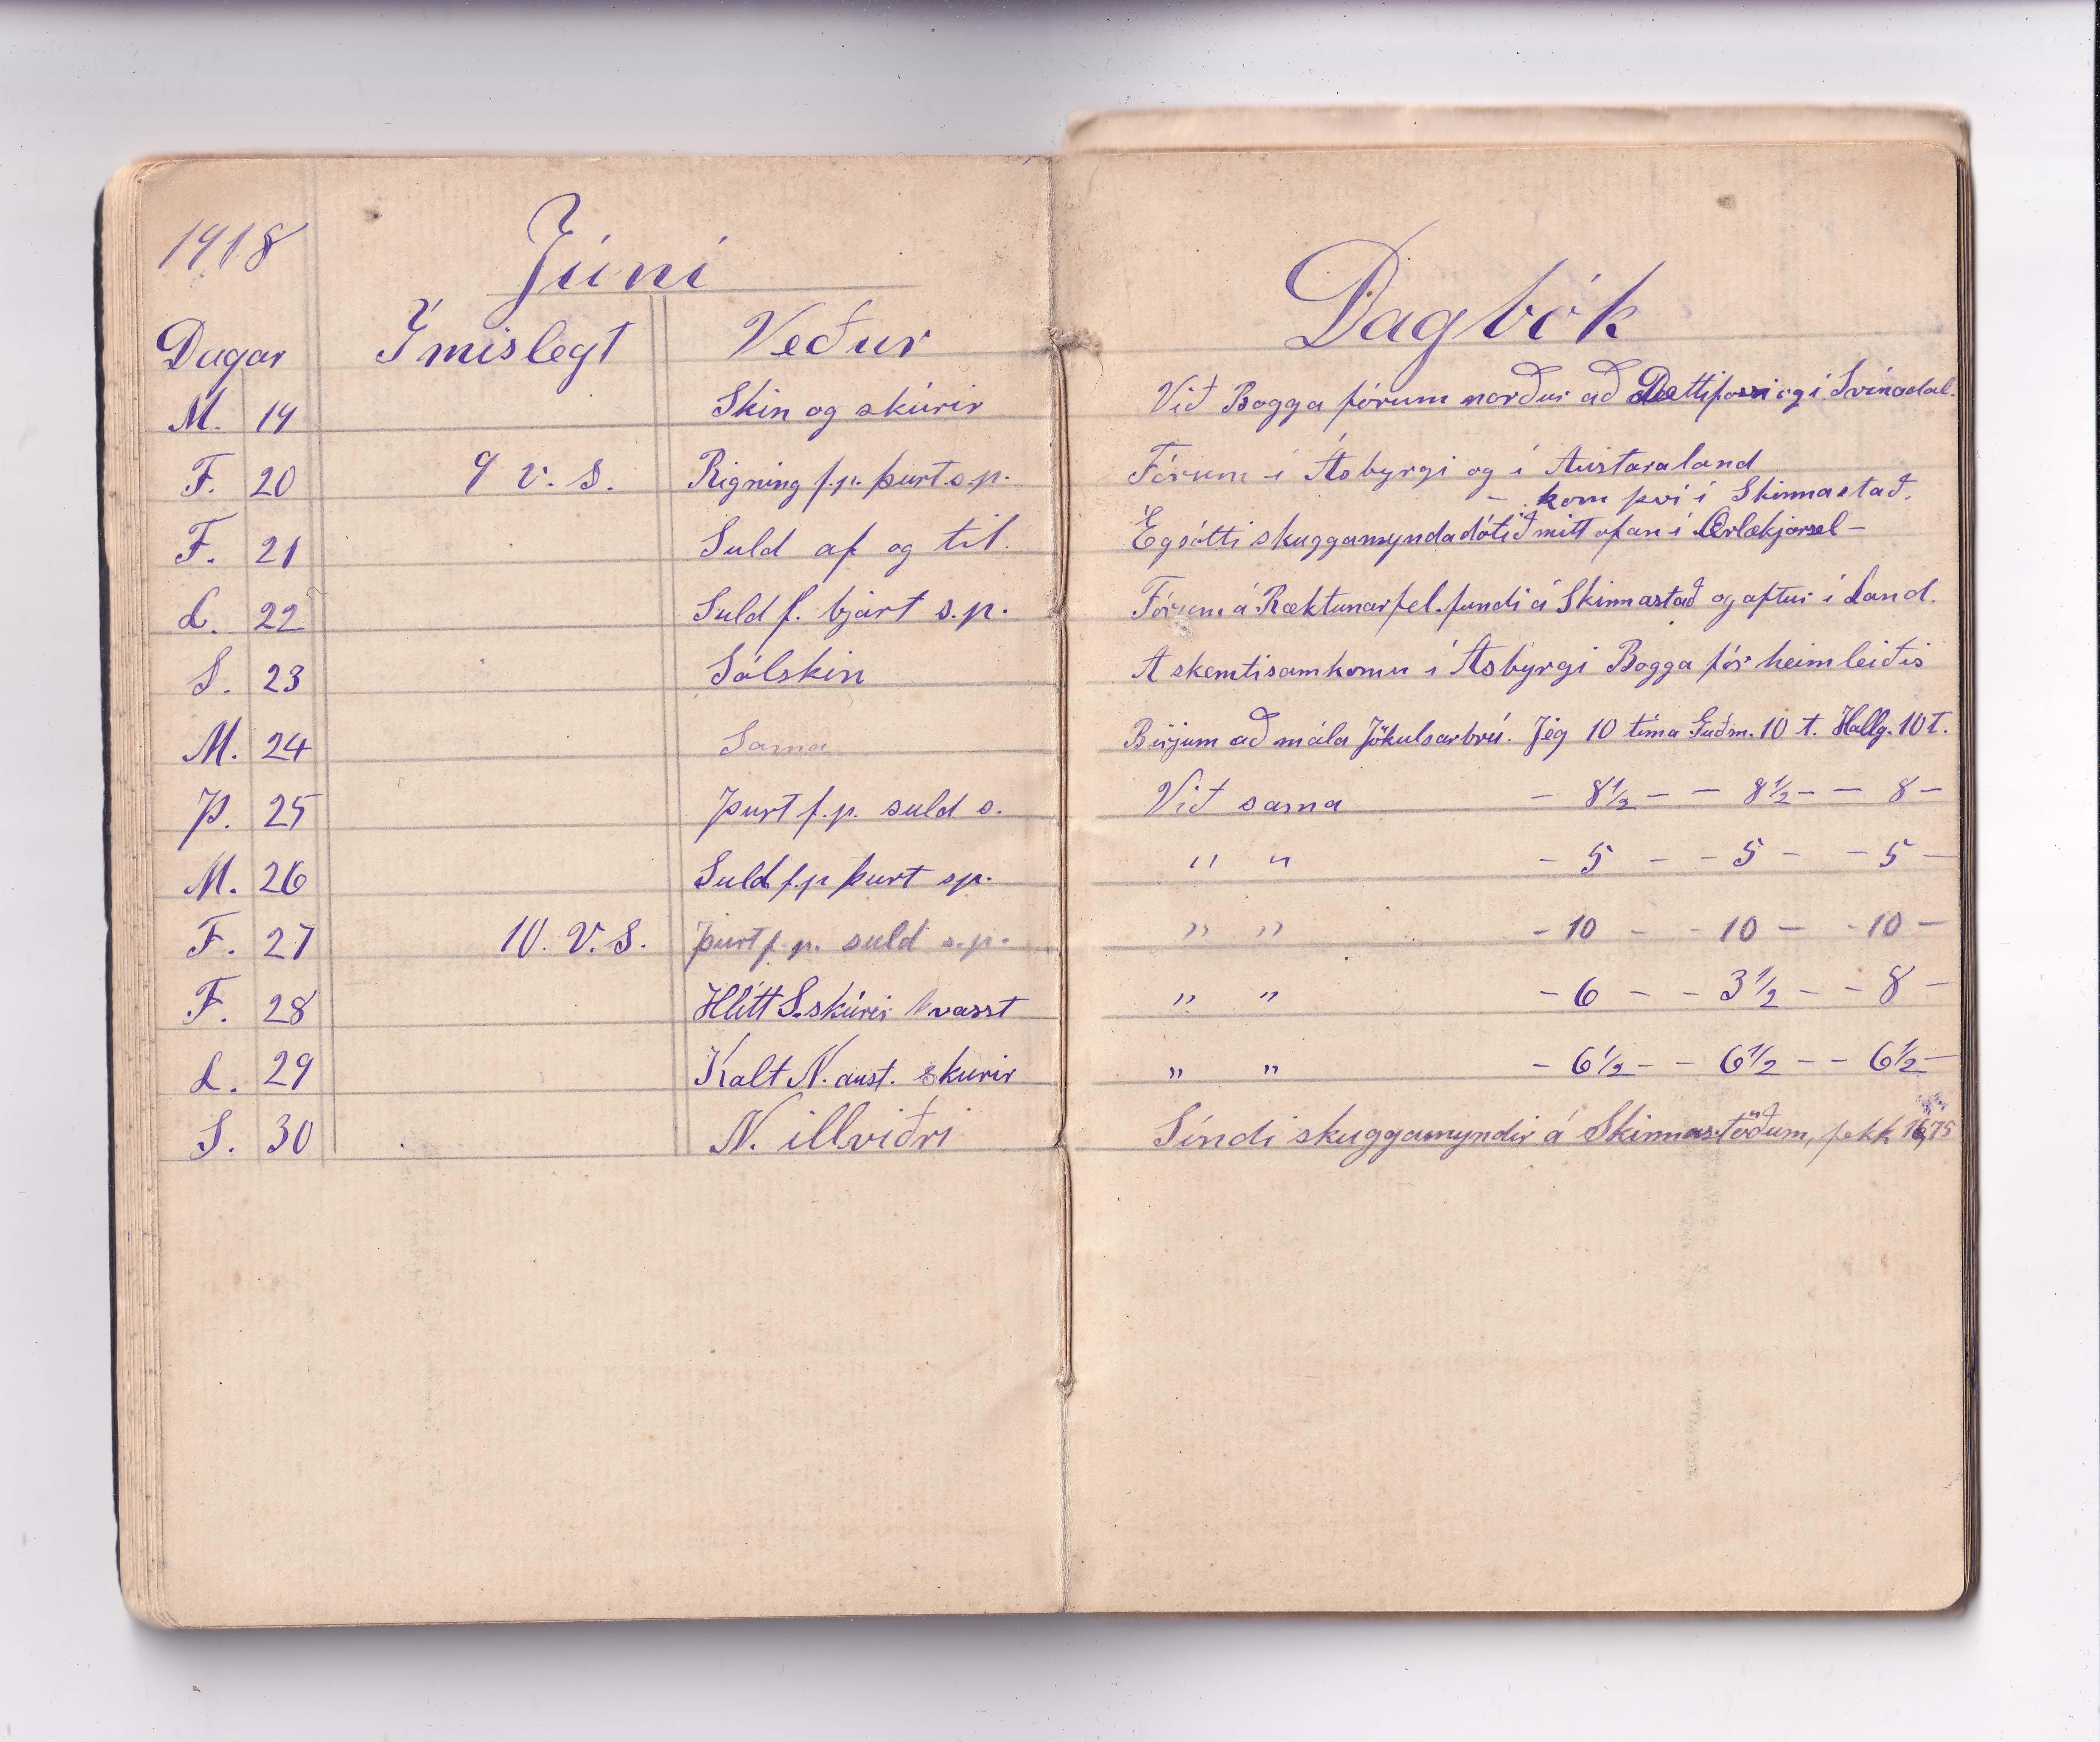 1918 Júní
Dagar Ímislegt Veður
M. 19 Skin og skúrir
F. 20 9 v. s. Rigning f.p. þurt s.p.
F. 21 Suld af og til.
L. 22 Suld f. bjart s.p.
S. 23 Sólskin
M. 24 Sama
Þ. 25 Þurt f.p. suld s.
M. 26 Suld f.p þurt sp.
F. 27 10. V. S. þurt f.p. suld s.p.
F. 28 Hlítt S. skúrir hvasst
L. 29 Kalt N. aust. skurir
S. 30 N. illviðri
Dagbók
Við Bogga fórum norður að Dettifossi og í Svínadal.
Fórum í Ásbyrgi og í Austaraland
– kom því í Skinnastað.
Ég sótti skuggamyndadótið mitt ofan í Ærlækjarsel –
Fórum á Ræktunarfel. fundi á Skinnastað og aftur í Land.
Á skemtisamkomu í Ásbyrgi Bogga fór heimleiðis
Birjum að mála Jökulsarbrú. Jég 10 tíma Guðm. 10 t. Hallg. 10 t.
Við sama – 8 1/2 – – 8 1/2 – – 8 –
" " – 5 – – 5 – – 5 –
" " – 10 – – 10 – – 10 –
" " – 6 – – 3 1/2 – – 8 –
" " – 6 1/2 – – 6 1/2 – – 6 1/2 –
Síndi skuggamyndir á Skinnastöðum, fekk 16,75